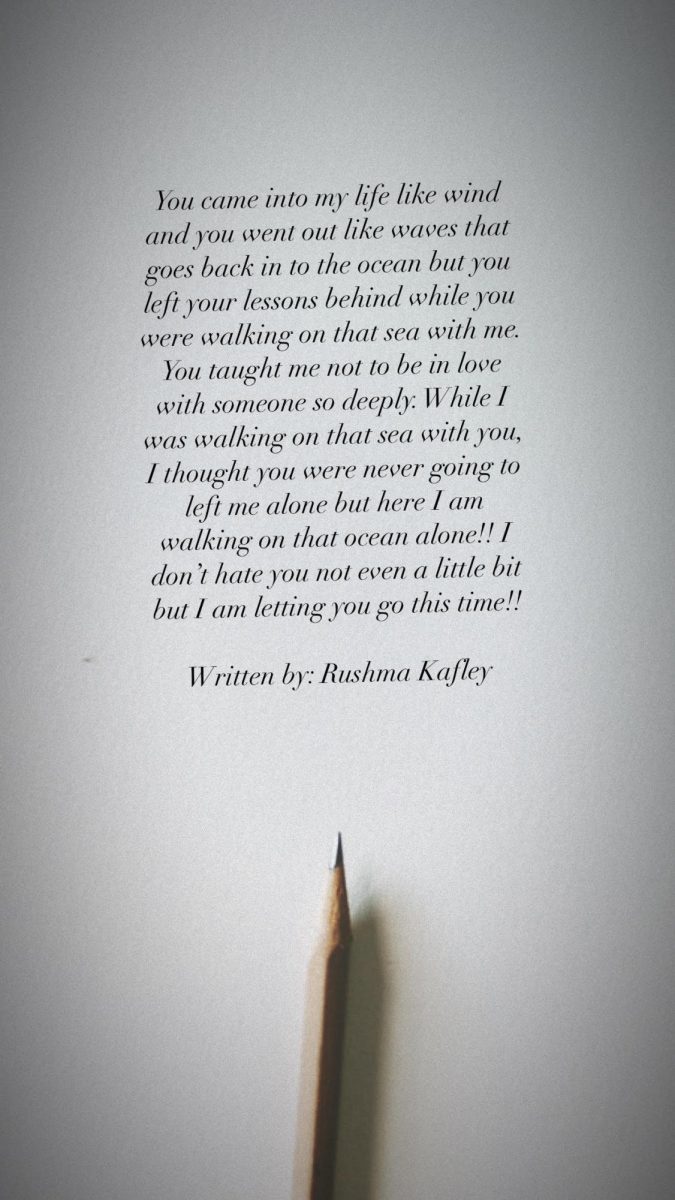 You came into my life like wind
and you went out like waves that
goes back in to the ocean but you
left your lessons behind while you
were walking on that sea with me.
You taught me not to be in love
with someone so deeply. While I
was walking on that sea with you,
I thought you were never going to
left me alone but here I am
walking on that ocean alone!! I
don't hate you not even a little bit
but I am letting you go this time!!
Written by: Rushma Kafley